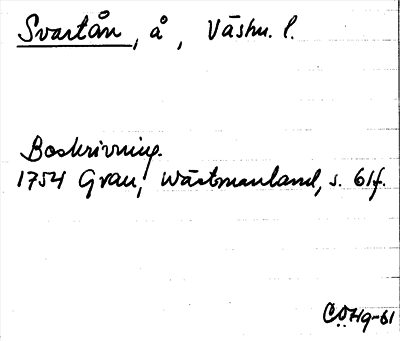 Svartån, å, Västm. l.
Beskrivning.
1754 Grau, Wästmanland, s. 61f.
CÖHg-61